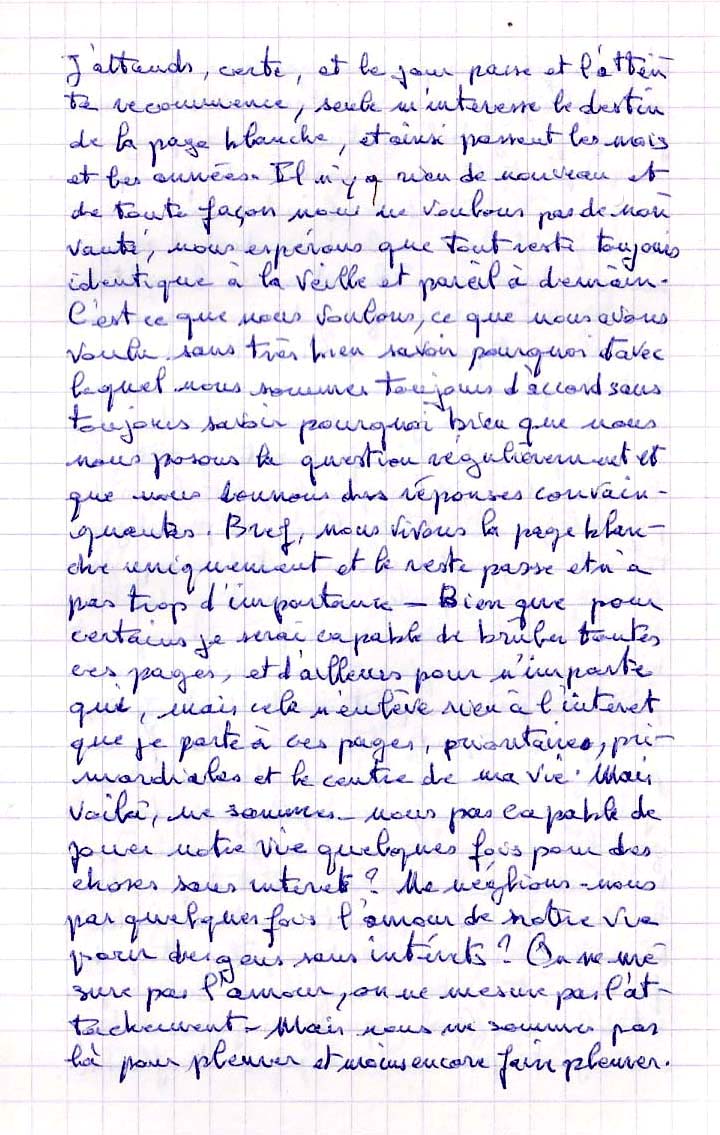 J'attends, certe, et le jour passe et l'atten
te recommence, seule m'interesse le destin
de la page blanche, et ainsi passent les mois
et les années. Il n'y a rien de nouveau et
de toute façon nous ne voulons pas de nou
vauté, nous espérons que tout reste toujours
identique à la veille et pareil à demain.
C'est ce que nous voulons, ce que nous avons
voulu sans très bien savoir pourquoi avec
lequel nous sommes toujours d'accord sans
toujours savoir pourquoi bien que nous
nous posons la question régulièrement et
que nous donnons des réponses convain-
quantes. Bref, nous vivons la page blan-
che uniquement et le reste passe et n'a
pas trop d'importance - Bien que pour
certains je serai capable de brûler toutes
ces pages, et d'ailleurs pour n'importe
qui, mais cela n'enlève rien à l'interet
que je porte à ces pages, prioritaires, pri-
mordiales et le centre de ma vie. Mais
voilà, ne sommes-nous pas capable de
jouer notre vie quelques fois pour des
choses sans interet? Ne négligons-nous
pas quelques fois l'amour de notre vie
pour des gens sans intérêts? On ne me
sure pas l'amour, on ne mesure pas l'at-
tachement. Mais nous ne sommes pas
là pour pleurer et moins encore faire pleurer.